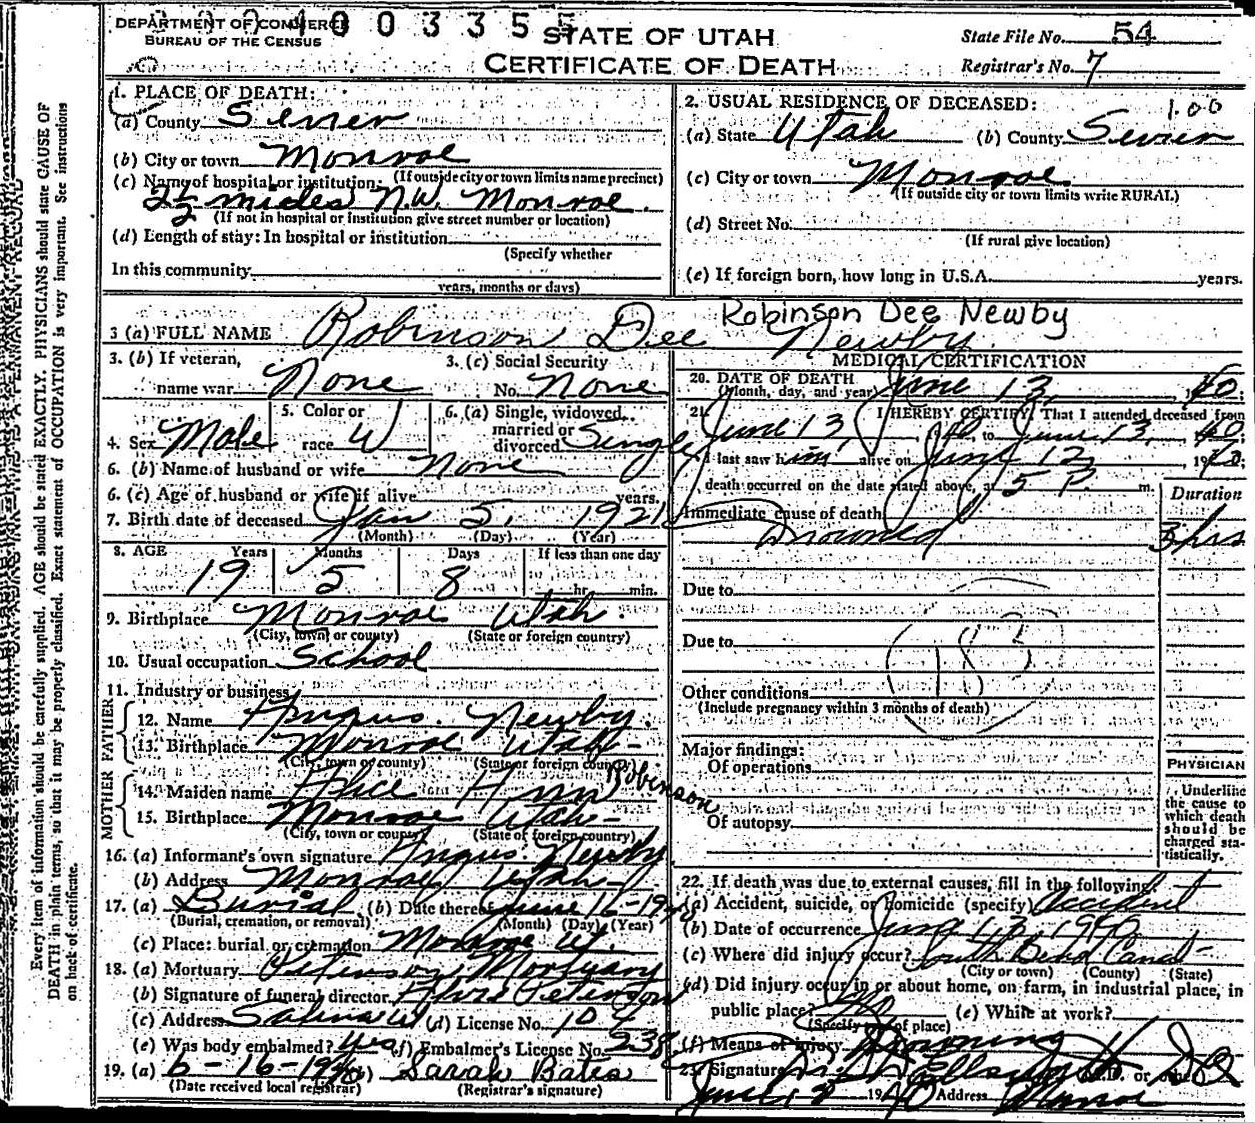 DEPARTMENT OF COMMERCE
BUREAU OF THE CENSUS
1003355
STATE OF UTAH
CERTIFICATE OF DEATH
State File No. 54
Registrar's No. 7
Every item of information should be carefully supplied. AGE should be stated EXACTLY. PHYSICIANS should state CAUSE OF
DEATH in plain terms, so that it may be properly classified. Exact statement of OCCUPATION is very important. See instructions
on back of certificate.
1. PLACE OF DEATH:
(a) County Sevier
(b) City or town Monroe
(If outside city or town limits name precinct)
(c) Name of hospital or institution:
2½ miles N.W. Monroe.
(If not in hospital or institution give street number or location)
(d) Length of stay: In hospital or institution
(Specify whether
In this community
years, months or days)
2. USUAL RESIDENCE OF DECEASED:
1.00
(a) State Utah (b) County Sevier
(c) City or town Monroe
(If outside city or town limits write RURAL)
(d) Street No.
(If rural give location)
(e) If foreign born, how long in U.S.A. years.
Robinson Dee Newby
3 (a) FULL NAME Robinson Dee Newby
3. (b) If veteran, name war None
3. (c) Social Security No. None
4. Sex Male
5. Color or race W
6. (a) Single, widowed, married or divorced Single
6. (b) Name of husband or wife None
6. (c) Age of husband or wife if alive years.
7. Birth date of deceased Jan 5, 1921
(Month) (Day) (Year)
8. AGE Years Months Days If less than one day
19 5 8 hr. min.
9. Birthplace Monroe Utah.
(City, town, or county) (State or foreign country)
10. Usual occupation School
11. Industry or business
FATHER
12. Name Angus. Newby.
13. Birthplace Monroe Utah-
(City, town or county) (State or foreign country)
MOTHER
14. Maiden name Alice Ann Robinson
15. Birthplace Monroe Utah-
(City, town or county) (State of foreign country)
16. (a) Informant's own signature Angus. Newby
(b) Address Monroe Utah-
17. (a) Burial (b) Date thereof June 16-1940
(Burial, cremation, or removal) (Month) (Day) (Year)
(c) Place: burial or cremation Monroe Ut.
18. (a) Mortuary Peterson Mortuary
(b) Signature of funeral director Peterson
(c) Address Salina Ut (d) License No. 104
(e) Was body embalmed? Yes (f) Embalmer's License No. 238
19. (a) 6-16-1940 (b) Sarah Bates
(Date received local registrar) (Registrar's signature)
MEDICAL CERTIFICATION
20. DATE OF DEATH June 13, 1940
(Month, day, and year)
21. I HEREBY CERTIFY, That I attended deceased from
June 13, 1940, to June 13, 1940;
I last saw him alive on June 12, 1940;
death occurred on the date stated above, at 5 P m.
Immediate cause of death
Duration
Drowned 3 hrs
Due to
Due to
183
Other conditions
(Include pregnancy within 3 months of death)
Major findings:
Of operations
Of autopsy
PHYSICIAN
Underline
the cause to
which death
should be
charged sta-
tistically.
22. If death was due to external causes, fill in the following:
(a) Accident, suicide, or homicide (specify) Accident
(b) Date of occurrence June 13 1940
(c) Where did injury occur? South Bend Canal-
(City or town) (County) (State)
(d) Did injury occur in or about home, on farm, in industrial place, in
public place? No (e) While at work?
(Specify type of place)
(f) Means of injury Drowning
23. Signature M.D. or other
1940 Address Monroe